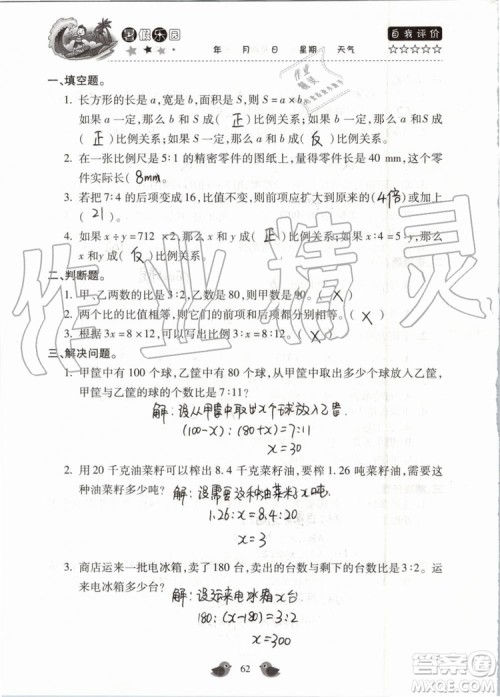 暑假乐园
年 月 日 星期 天气
自我评价
☆☆☆☆☆
一、填空题。
1. 长方形的长是 a,宽是 b,面积是 S,则 S=a×b。
如果 a 一定,b 和 S 成( 正 )比例关系;如果 b 一定,a
和 S 成( 正 )比例关系;如果 S 一定,a 和 b 成( 反 )比例关系。
2. 在一张比例尺是 5∶1 的精密零件的图纸上,量得零件长是 40 mm,这个零
件实际长( 8mm )。
3. 若把 7∶4 的后项变成 16,比值不变,则前项应扩大到原来的( 4倍 )或加上
( 21 )。
4. 如果 x÷y=712 ×2,那么 x 和 y 成( 正 )比例关系;如果 x∶4=5∶y,
那么 x 和 y 成( 反 )比例关系。
二、判断题。
1. 甲、乙两数的比是 3∶2,乙数是 80,则甲数是 80。( × )
2. 两个比的比值相等,它们的前项和后项都分别相等。( × )
3. 根据 3x=8×12,可以写出比例 3∶x=8∶12。( × )
三、解决问题。
1. 甲筐中有 100 个球,乙筐中有 80 个球,从甲筐中取出多少个球放入乙筐,
甲筐与乙筐的球的个数比是 7∶11?
解:设从甲筐中取出x个球放入乙筐
(100-x):(80+x)=7:11
x=30
2. 用 20 千克油菜籽可以榨出 8.4 千克菜籽油,要榨 1.26 吨菜籽油,需要这
种油菜籽多少吨?
解:设需要这种油菜籽x吨
1.26:x=8.4:20
x=3
3. 商店运来一批电冰箱,卖了 180 台,卖出的台数与剩下的台数比是 3∶2。
运来电冰箱多少台?
解:设运来电冰箱x台
180:(x-180)=3:2
x=300
62
作业精灵